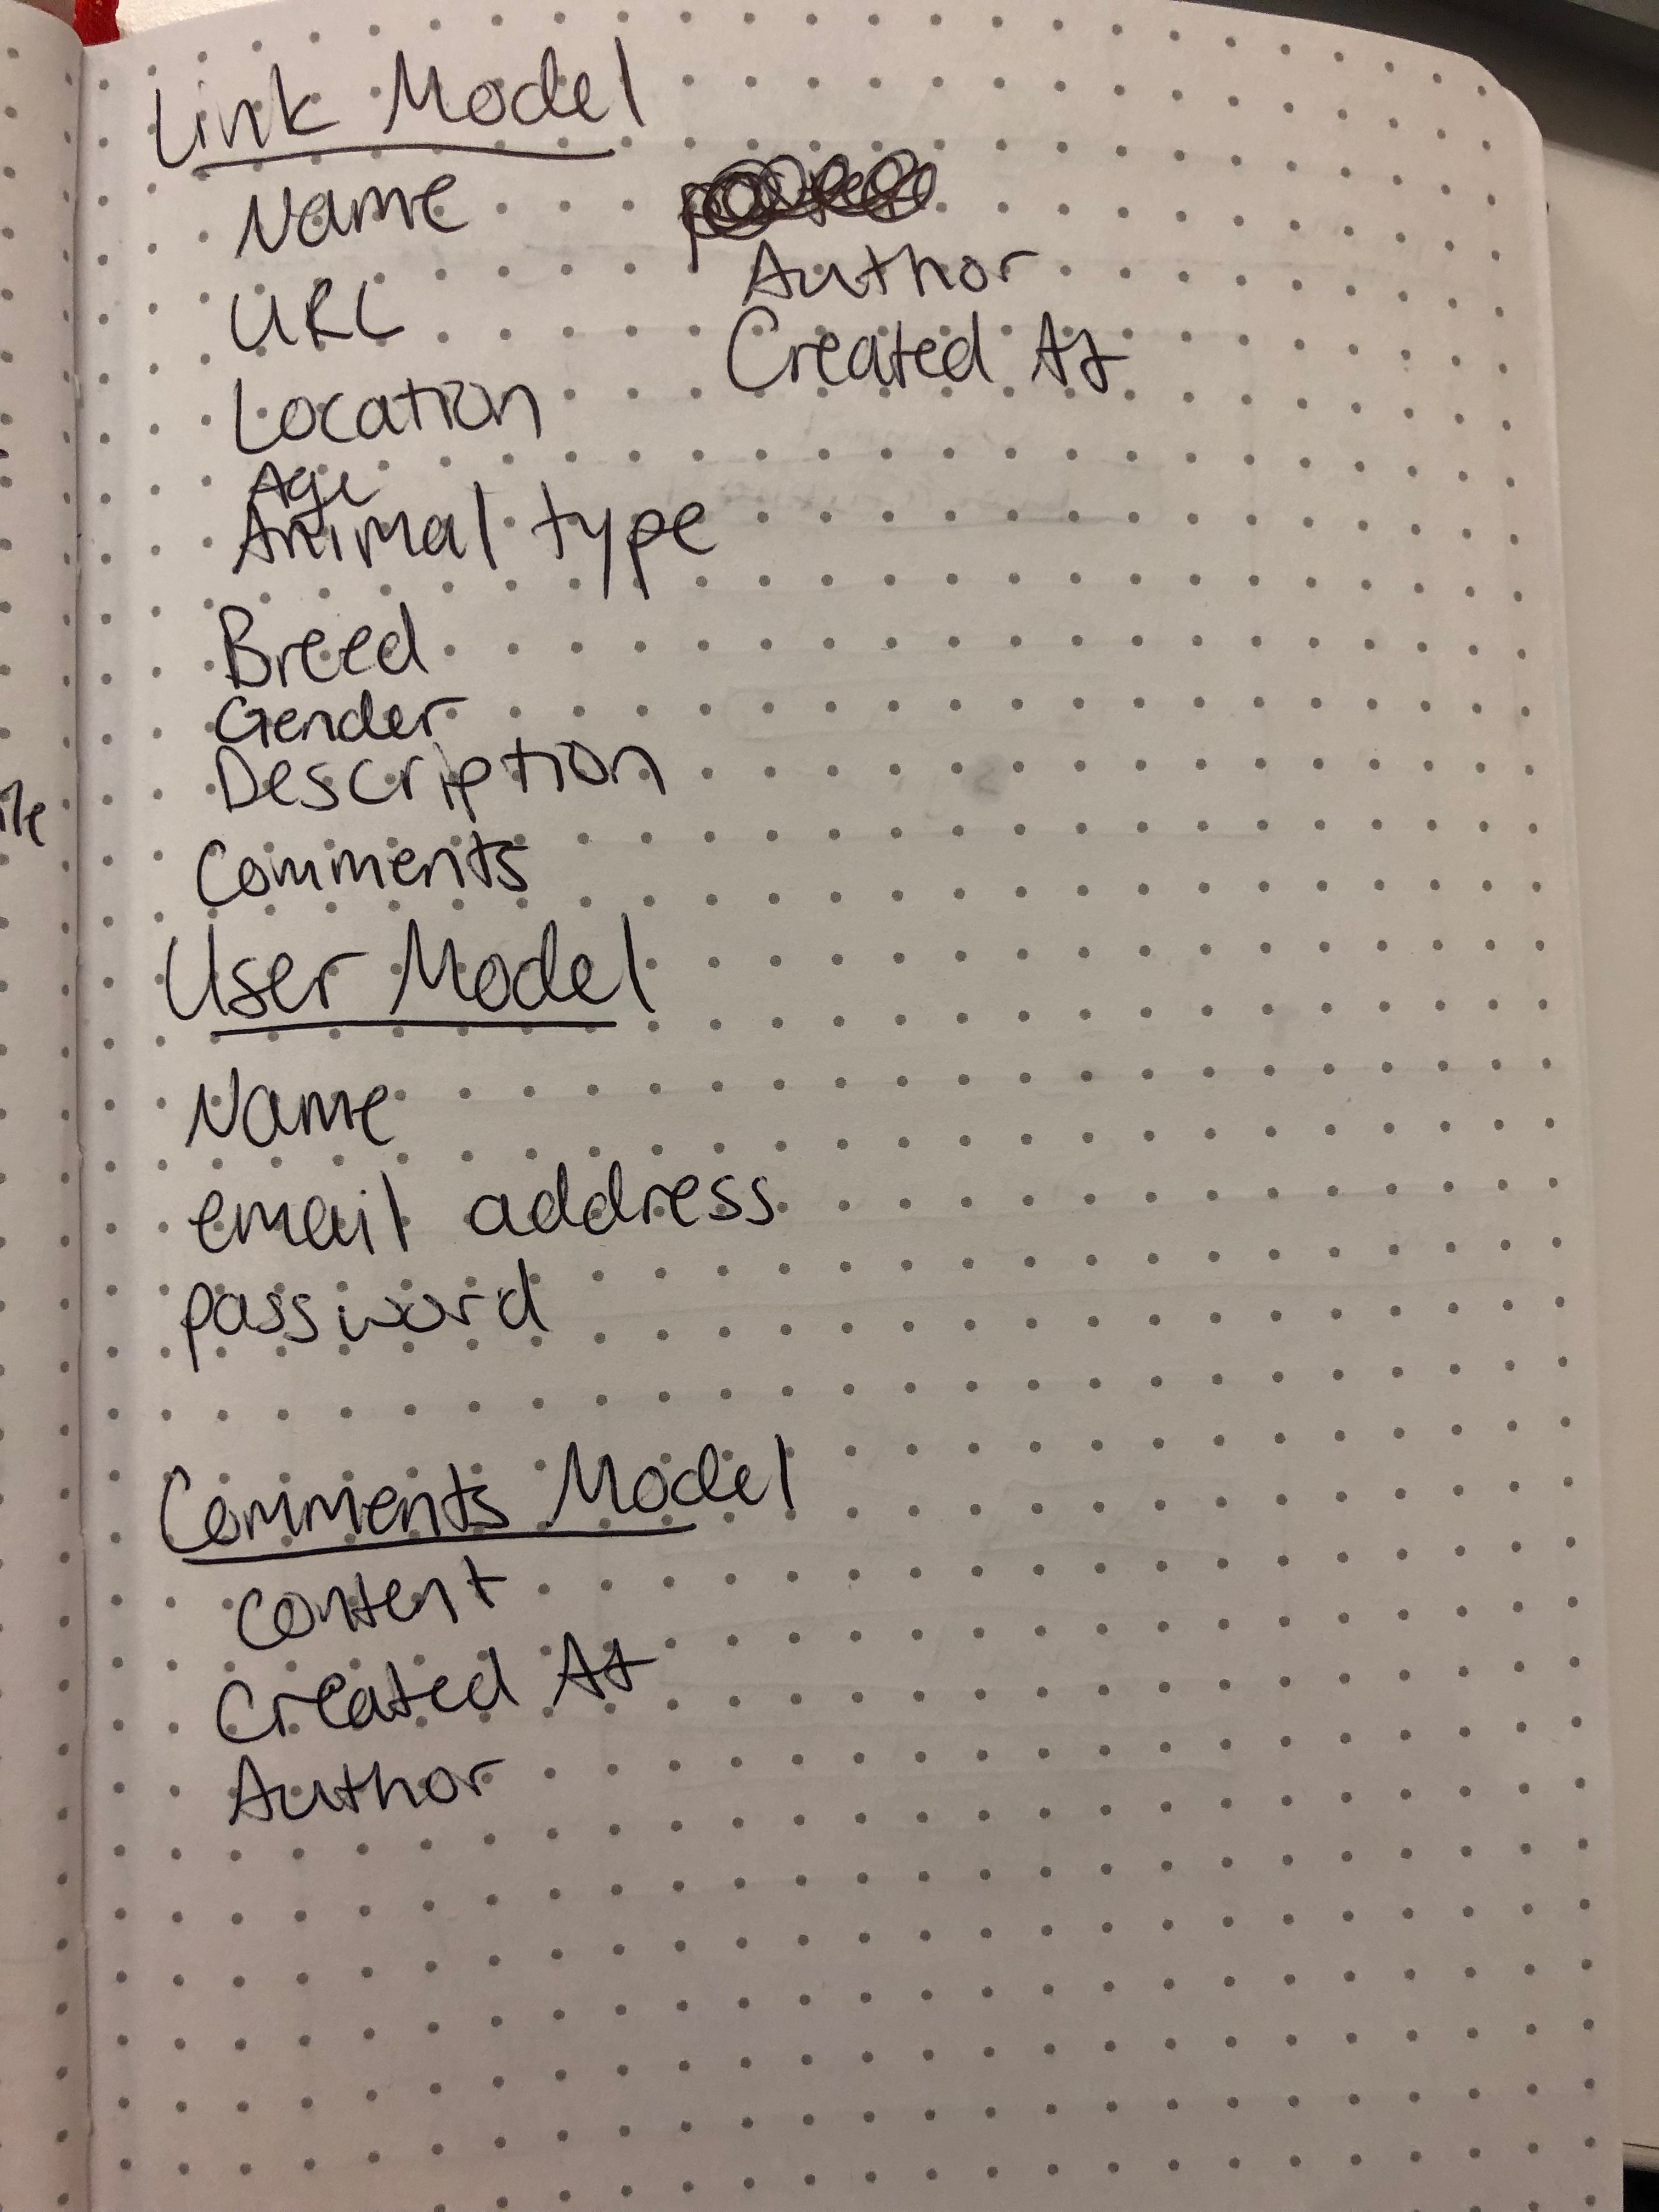 Link Model
Name
URL
Location
Age
Animal type
Breed
Gender
Description
Comments
Author
Created At
User Model
Name
email address
password
Comments Model
Content
Created At
Author